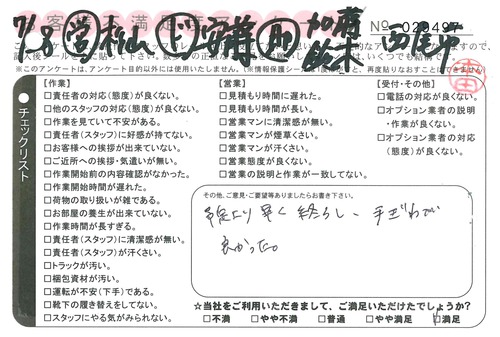 7/8 営 杉山 ド 安藤 助 加藤 鈴木 西尾市
お客様満足度
No 029497
アンケート目的以外には使いたしません。
※このアンケートは、アンケート目的以外には使用いたしません。
チェックリスト
【作業】
□責任者の対応(態度)が良くない。
□他のスタッフの対応(態度)が良くない。
□作業を見ていて不安がある。
□責任者(スタッフ)に好感が持てない。
□お客様への挨拶が出来ていない。
□ご近所への挨拶・気遣いが無い。
□作業開始前の内容確認がなかった。
□作業開始時間が遅れた。
□荷物の取り扱いが雑である。
□お部屋の養生が出来ていない。
□作業時間が長すぎる。
□責任者(スタッフ)に清潔感が無い。
□責任者(スタッフ)が汗くさい。
□トラックが汚い。
□梱包資材が汚い。
□運転が不安(下手)である。
□靴下の履き替えをしてない。
□スタッフにやる気がみられない。
【営業】
□見積もり時間に遅れた。
□見積もり時間が長い。
□営業マンに清潔感が無い。
□営業マンが煙草くさい。
□営業マンが汗くさい。
□営業態度が良くない。
□営業の説明と作業が一致してない。
【受付・その他】
□電話の対応が良くない。
□オプション業者の説明
・作業が良くない。
□オプション業者の対応
(態度)が良くない。
その他、ご意見・ご要望等ありましたらお書き下さい。
予定より早く終らし、手ぎわが
良かった。
☆当社をご利用いただきまして、ご満足いただけたでしょうか?
□不満 □やや不満 □普通 □やや満足 □満足